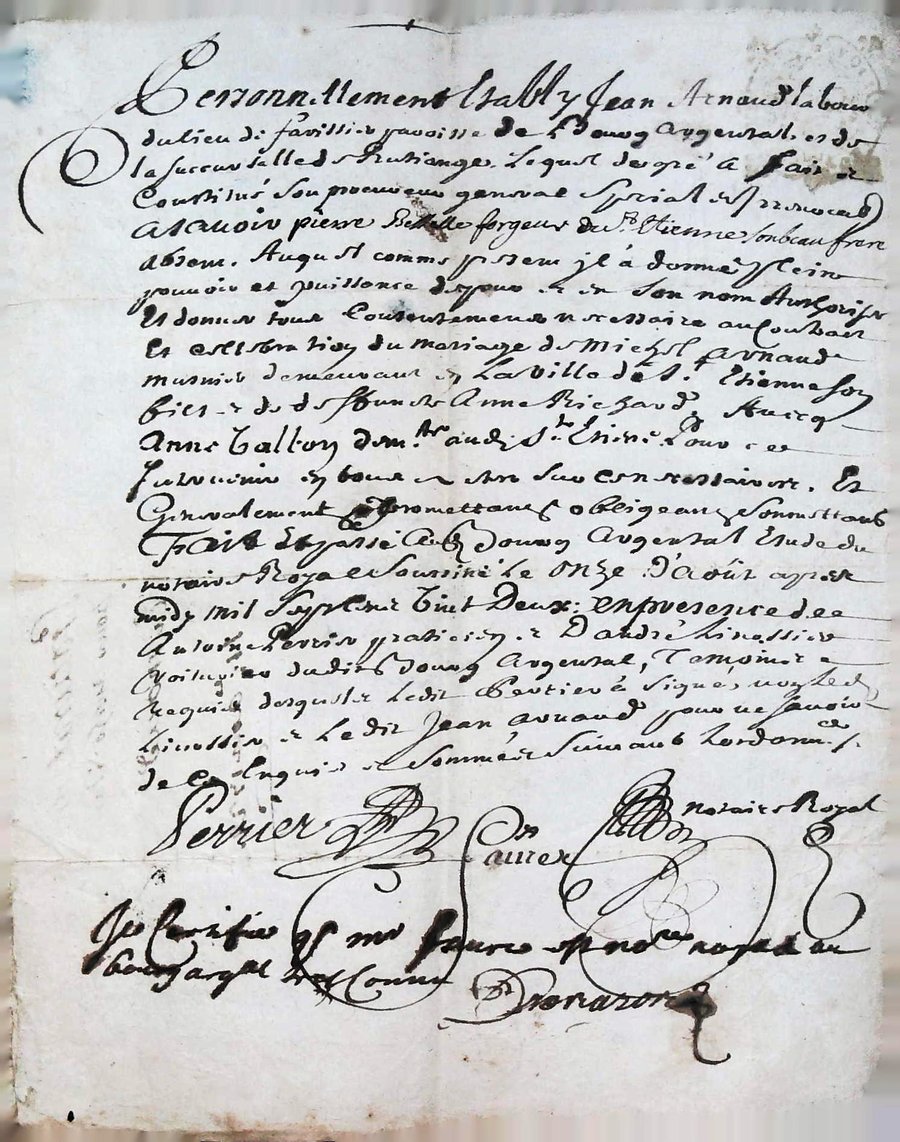 Personnellement Estably Jean Arnaud labour
du lieu de favissier paroisse de Bourg Argental et de
la succursalle de Rutiange. Lequel de gré a fait et
Constitué son procureur general special et irrevocab
Asavoir pierre forgeur de St. Etienne son beau frere
absent. Auquel comme present il à donné plein
pouvoir et puissance de pour et en son nom Authoriser
Et donner tout Consentement necessaire au Contract
Et cellebration du mariage de Michel Arnaud
musnier demeurant en La ville de St. Etienne son
fils et de deffuncte Anne Richard, Avecq
Anne Tallon demte audit St. Etiene Pour ce
Intervenir en tous actes sur ce necessaires. Et
Generalement promettant obligeant soumettant
Fait Et passé au Bourg Argental Etude du
notaire Royal Soussiné Le onze d'Août apres
midy mil Sept cent vint Deux: en presence de
Antoine Perrier praticien et D'andré Linossier
voiturier dudit Bourg Argental, Temoins
requis desquels Ledit Perrier à signé, non Ledit
Linossier et Ledit Jean Arnaud pour ne sçavoir
de ce Enquis et sommés suivant Lordonnce.
Perrier
notaire Royal
Je Certifie q mr est nore royal au
bourg argtal Connu